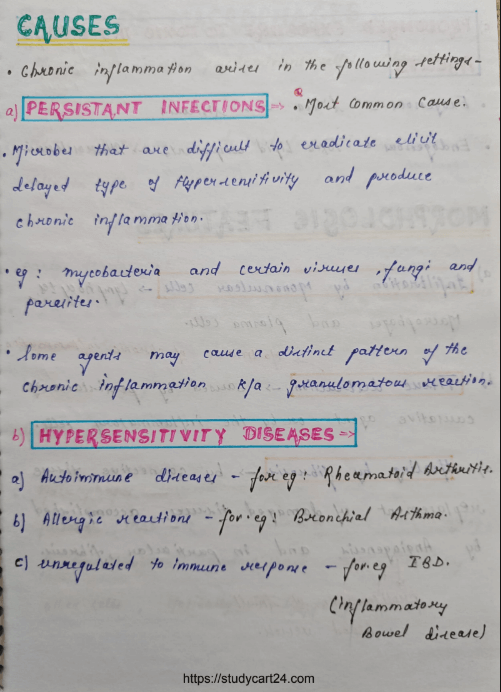 CAUSES
• Chronic inflammation arises in the following settings -
a) PERSISTANT INFECTIONS => • Most common cause.
• Microbes that are difficult to eradicate elicit
delayed type of Hypersensitivity and produce
chronic inflammation.
• eg : mycobacteria and certain viruses , fungi and
parasites.
• Some agents may cause a distinct pattern of the
chronic inflammation k/a - granulomatous reaction.
b) HYPERSENSITIVITY DISEASES =>
a) Autoimmune diseases - for eg : Rheumatoid Arthritis.
b) Allergic reactions - for eg : Bronchial Asthma.
c) unregulated to immune response - for eg IBD.
(inflammatory
Bowel disease)
https://studycart24.com